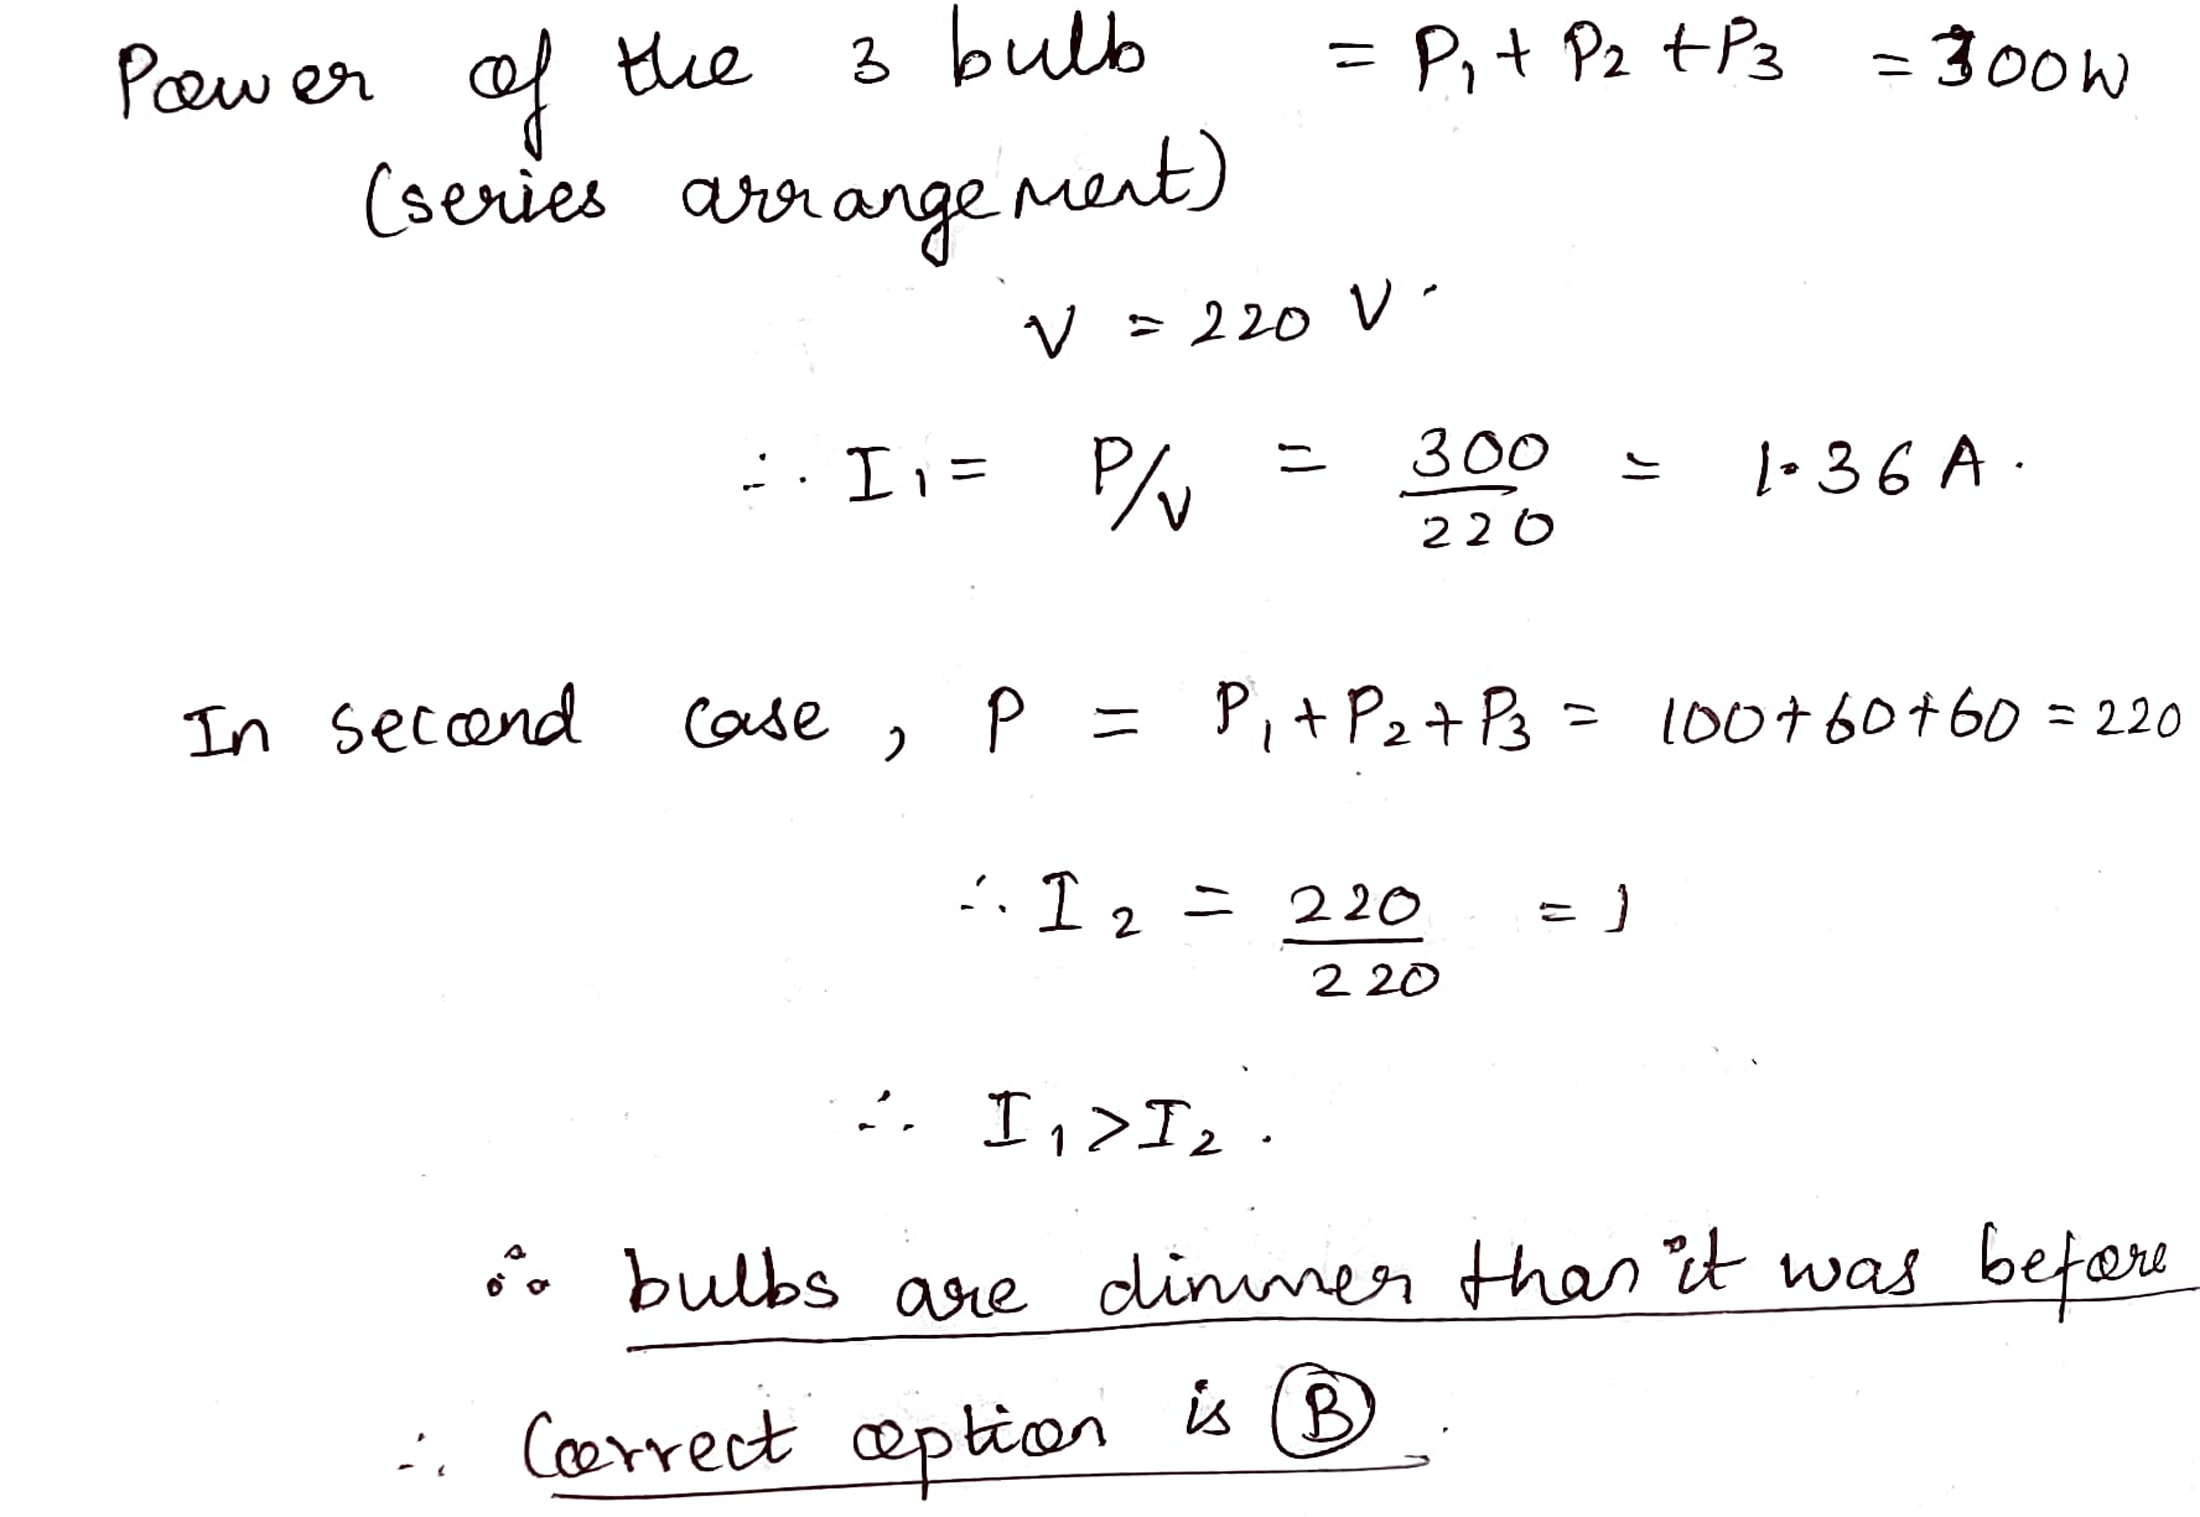 Power of the 3 bulb = P₁ + P₂ + P₃ = 300W
(series arrangement)
V = 220 V.
∴ I₁ = P/V = 300/220 = 1.36 A.
In second case, P = P₁ + P₂ + P₃ = 100 + 60 + 60 = 220
∴ I₂ = 220/220 = 1
∴ I₁ > I₂.
∴ bulbs are dimmer than it was before
∴ Correct option is (B).